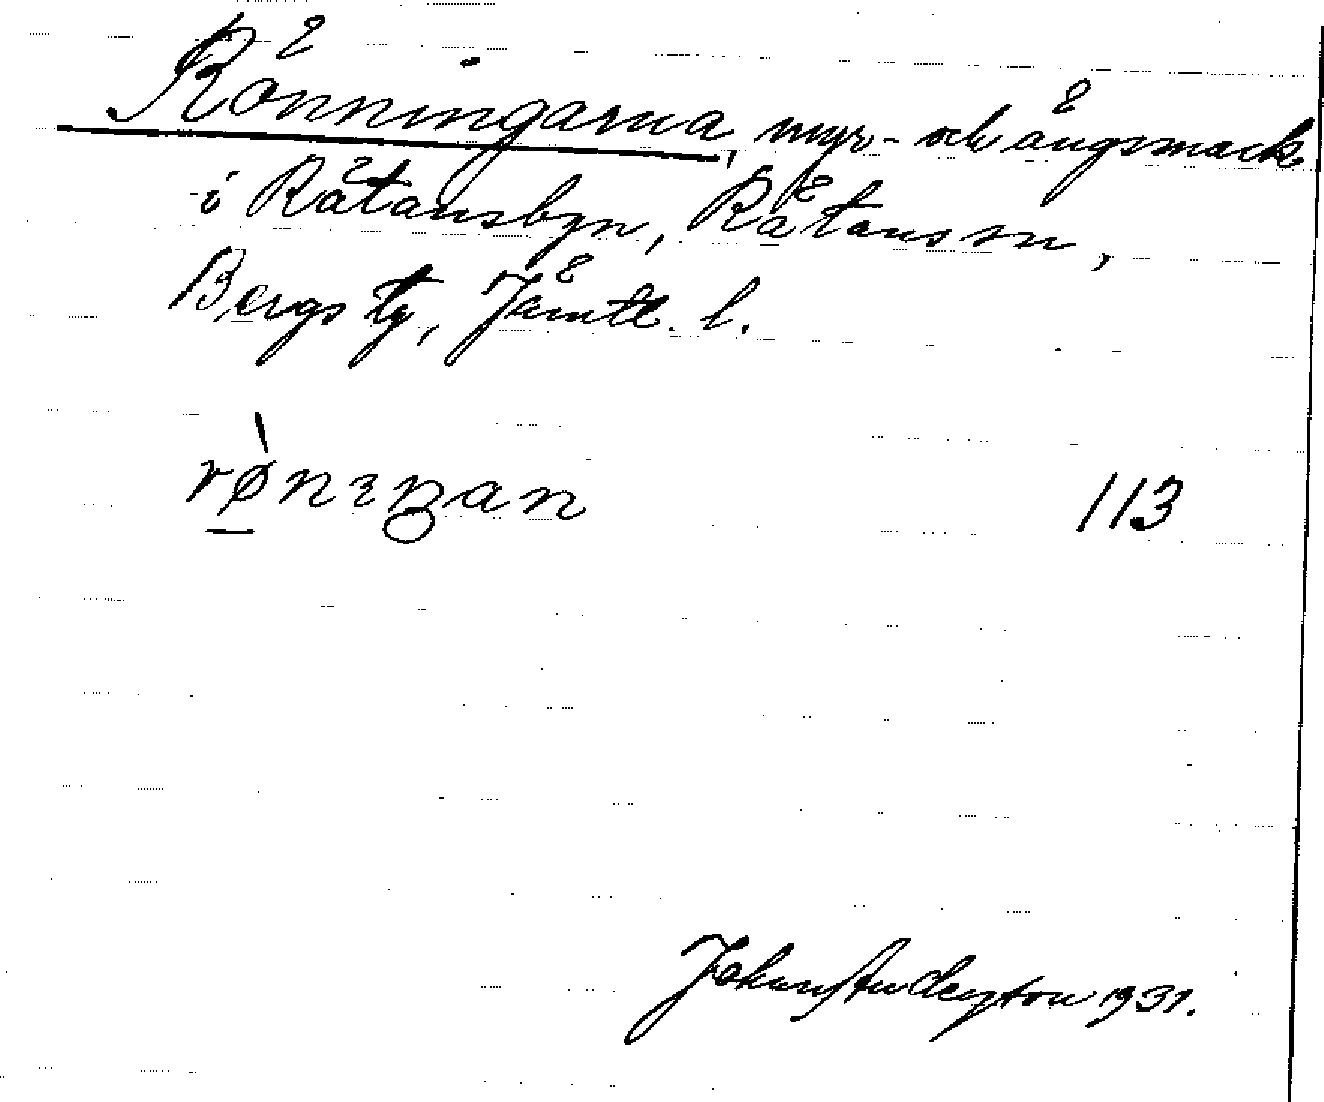 Rönningarna, myr- och ängsmark
i Rätansbyn, Rätans sn,
Bergs tg, Jämtl. l.
rø̀nıŋan 113
Johan Anderzton 1931.